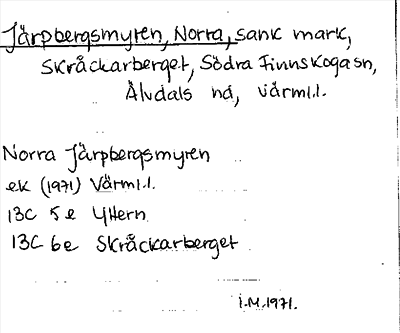 Järpbergsmyren, Norra, sank mark,
Skråckarberget, Södra Finnskogasn,
Älvdals hd, Värml.l.
Norra Järpbergsmyren
ek (1971) Värml.l.
13C 5e Yttern
13C 6e Skråckarberget
I.M.1971.